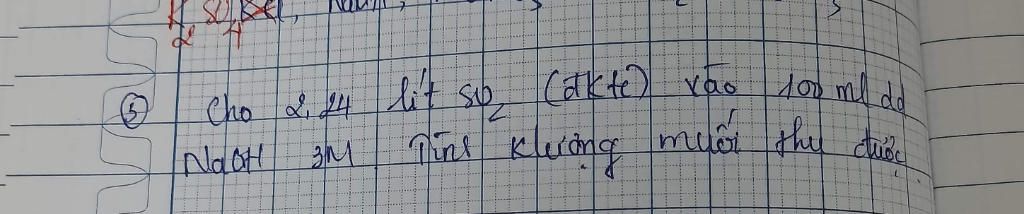 K2SO4
⑤ Cho 2,24 lít SO2 (đktc) vào 100 ml dd
NaOH 3M Tính klượng muối thu được